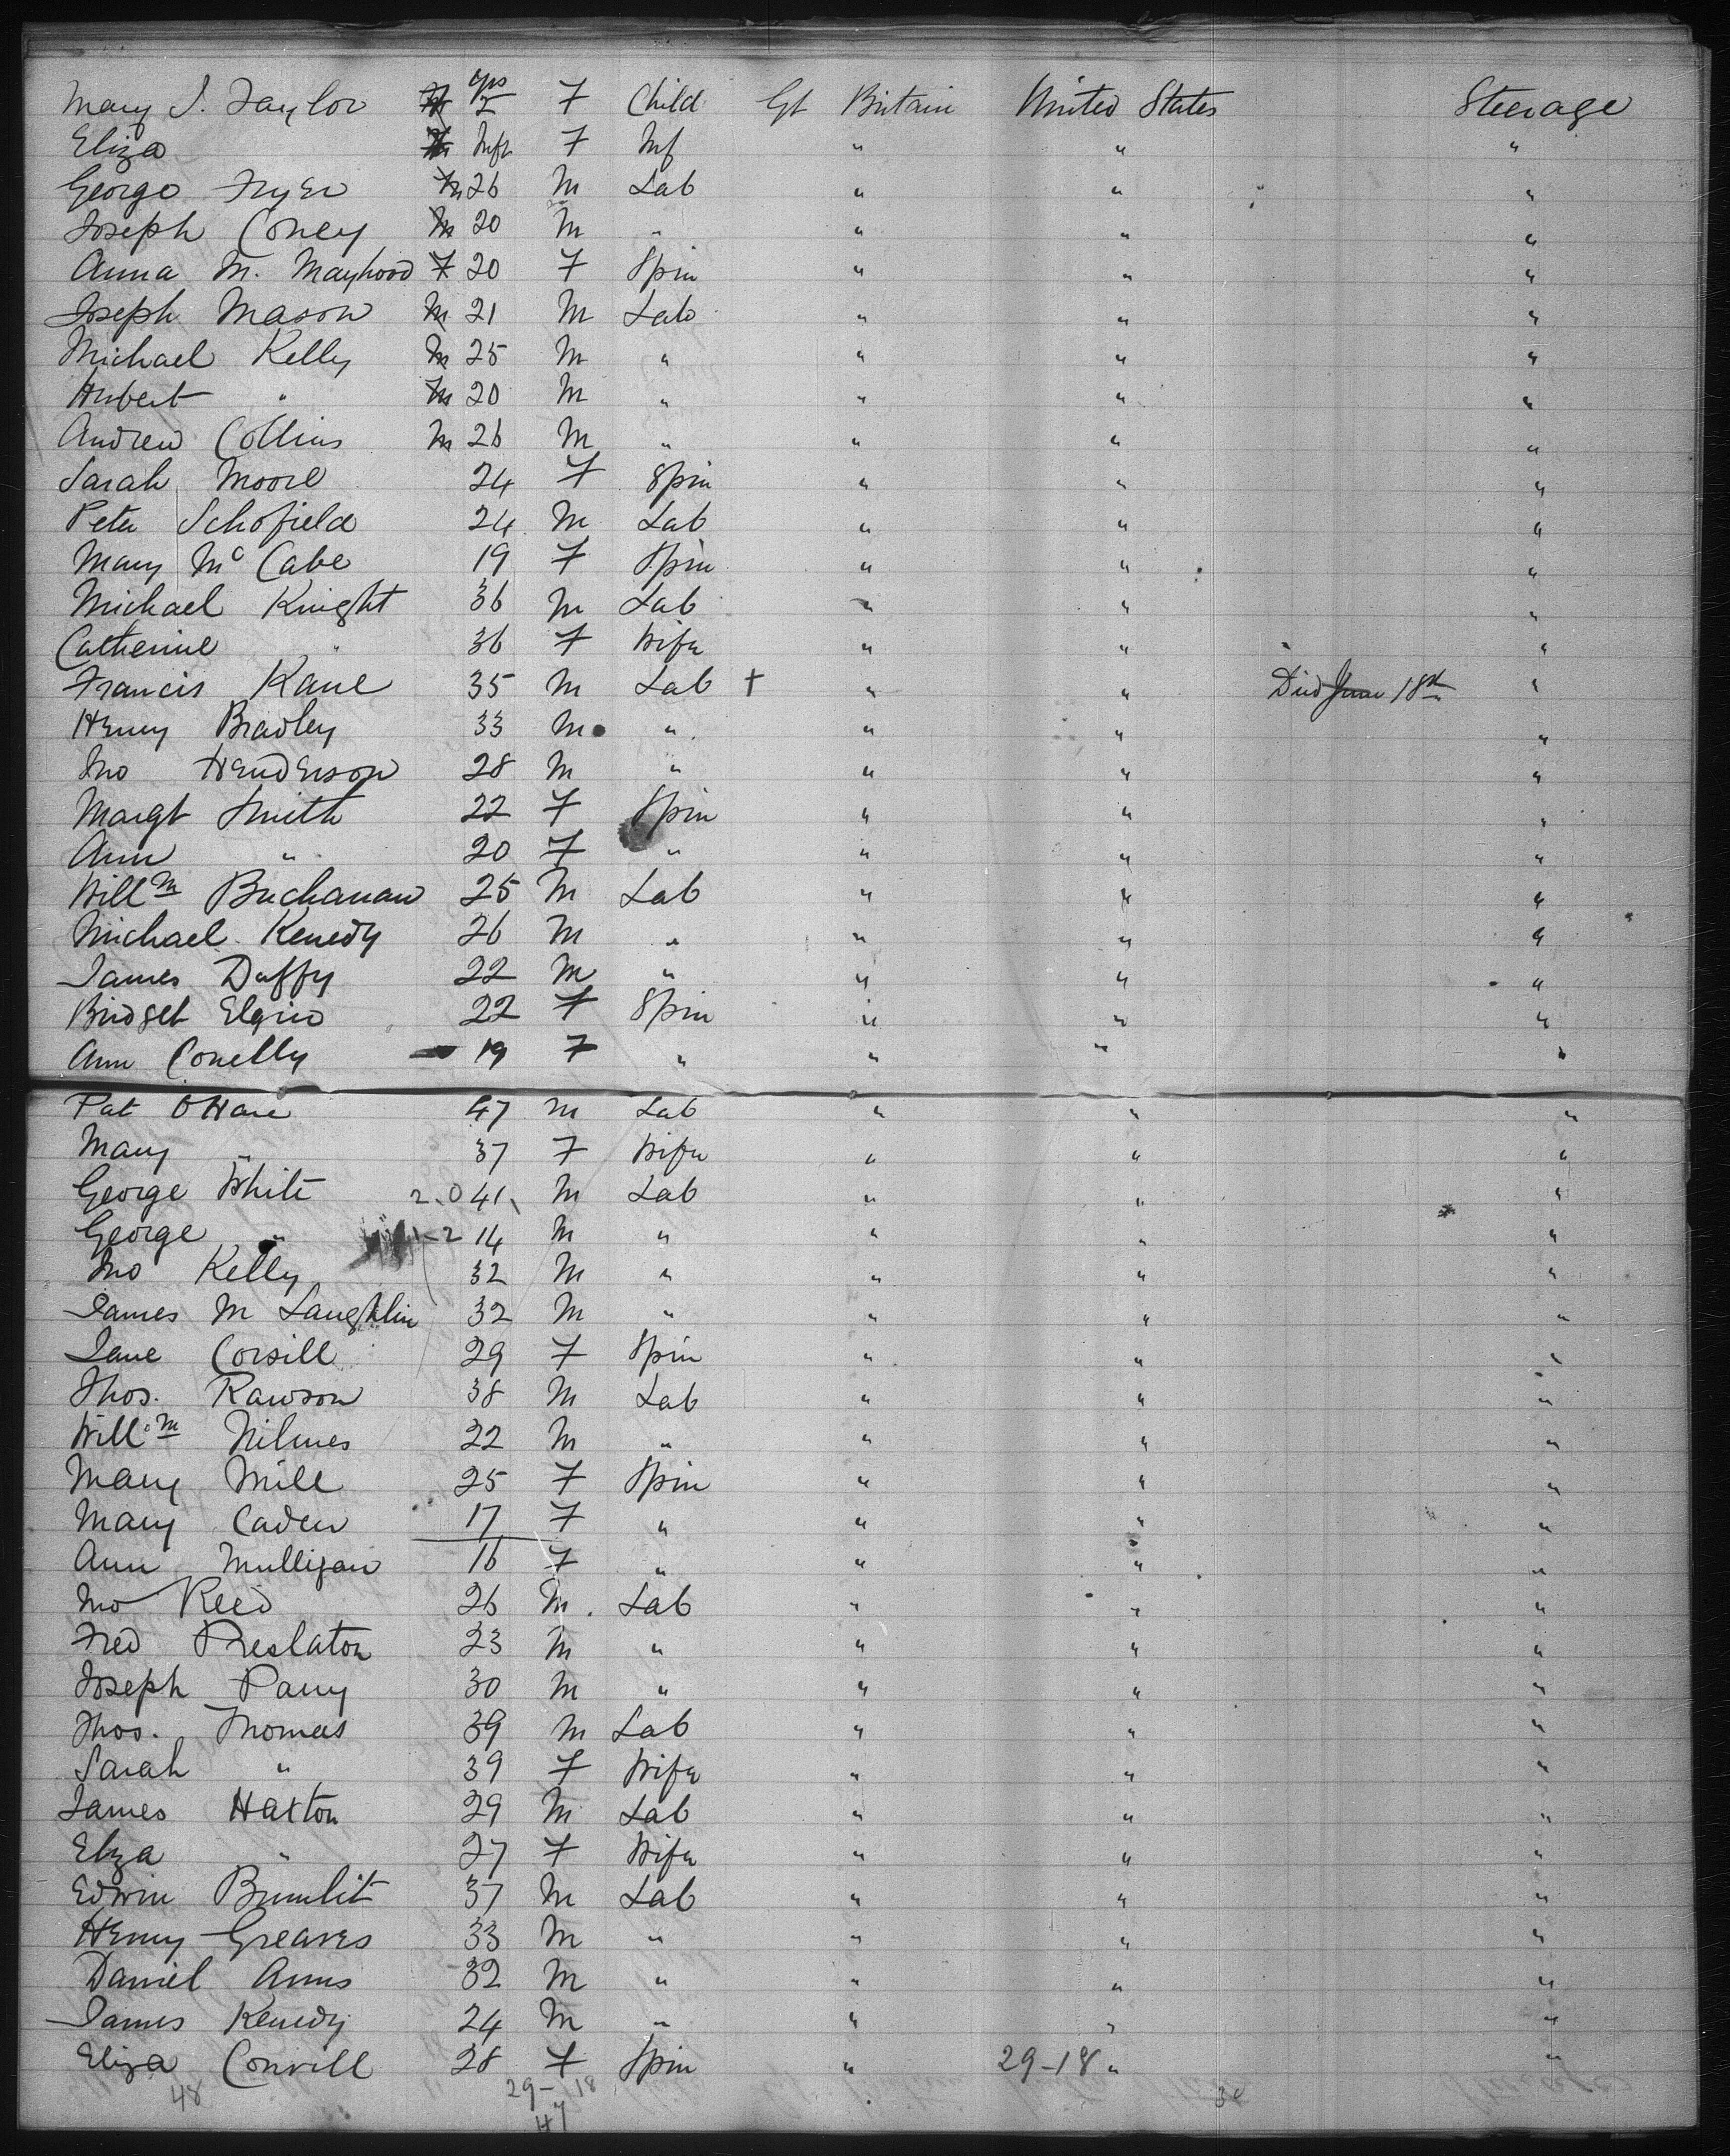 Mary J. Taylor yrs 2 F Child Gt Britain United States Steerage
Eliza Inft F Inf " " "
George Fryer 26 M Lab " " "
Joseph Coney 20 M " " " "
Anna M. Mayhood 20 F Spin " " "
Joseph Mason 21 M Lab " " "
Michael Kelly 25 M " " " "
Hubert " 20 M " " " "
Andrew Collins 26 M " " " "
Sarah Moore 24 F Spin " " "
Peter Schofield 24 M Lab " " "
Mary McCabe 19 F Spin " " "
Michael Knight 36 M Lab " " "
Catherine " 36 F Wife " " "
Francis Kane 35 M Lab † " " Died June 18th "
Henry Bradley 33 M " " " "
Jno Henderson 28 M " " " "
Margt Smith 22 F Spin " " "
Ann " 20 F " " " "
Willm Buchanan 25 M Lab " " "
Michael Kenedy 26 M " " " "
James Duffy 22 M " " " "
Bridget 22 F Spin " " "
Ann Conelly 19 F " " " "
Pat O'Hare 47 M Lab " " "
Mary " 37 F Wife " " "
George White 2.0 41 M Lab " " "
George " 14 M " " " "
Jno Kelly 32 M " " " "
James M Laughlin 32 M " " " "
Jane Corsill 29 F Spin " " "
Thos. Rawson 38 M Lab " " "
Willm 22 M " " " "
Mary Mill 25 F Spin " " "
Mary Caden 17 F " " " "
Ann Mulligan 16 F " " " "
Jno Reed 26 M. Lab " " "
Fred 23 M " " " "
Joseph Parry 30 M " " " "
Thos. Thomas 39 M Lab " " "
Sarah " 39 F Wife " " "
James Haxton 29 M Lab " " "
Eliza " 27 F Wife " " "
Edwin 37 M Lab " " "
Henry Greaves 33 M " " " "
Daniel Anns 32 M " " " "
James Kenedy 24 M " " " "
Eliza Convill 28 F Spin " 29-18 " "
48 29-18
47